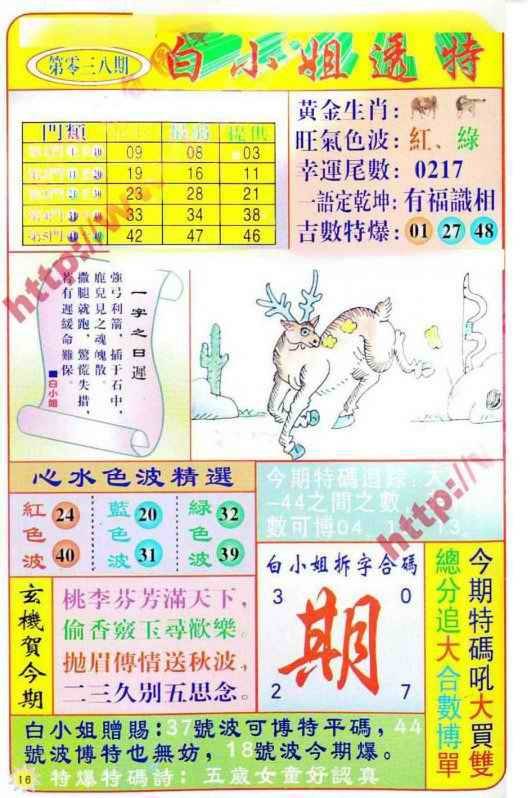 第零三八期
白小姐透特
門類
09 08 03
19 16 11
23 28 21
33 34 38
42 47 46
黃金生肖：
旺氣色波：紅、綠
幸運尾數：0217
一語定乾坤：有福識相
吉數特爆：01 27 48
一字之日遲
強弓利箭，插于石中，
鹿兒見之魂魄散。
撒腿就跑，驚慌失措，
若有遲緩命難保。
■白小姐
心水色波精選
紅色波 24 40
藍色波 20 31
綠色波 32 39
今期特碼追踪：大
-44之間之數
數可博04、1 13
玄機賀今期
桃李芬芳滿天下，
偷香竊玉尋歡樂。
拋眉傳情送秋波，
二三久別五思念。
白小姐拆字合碼
3 0
期
2 7
今期特碼吼大買雙
總分追大合數博單
白小姐贈賜：37號波可博特平碼，44
號波博特也無妨，18號波今期爆。
特爆特碼詩：五歲女童好認真
16
http://w
http://w